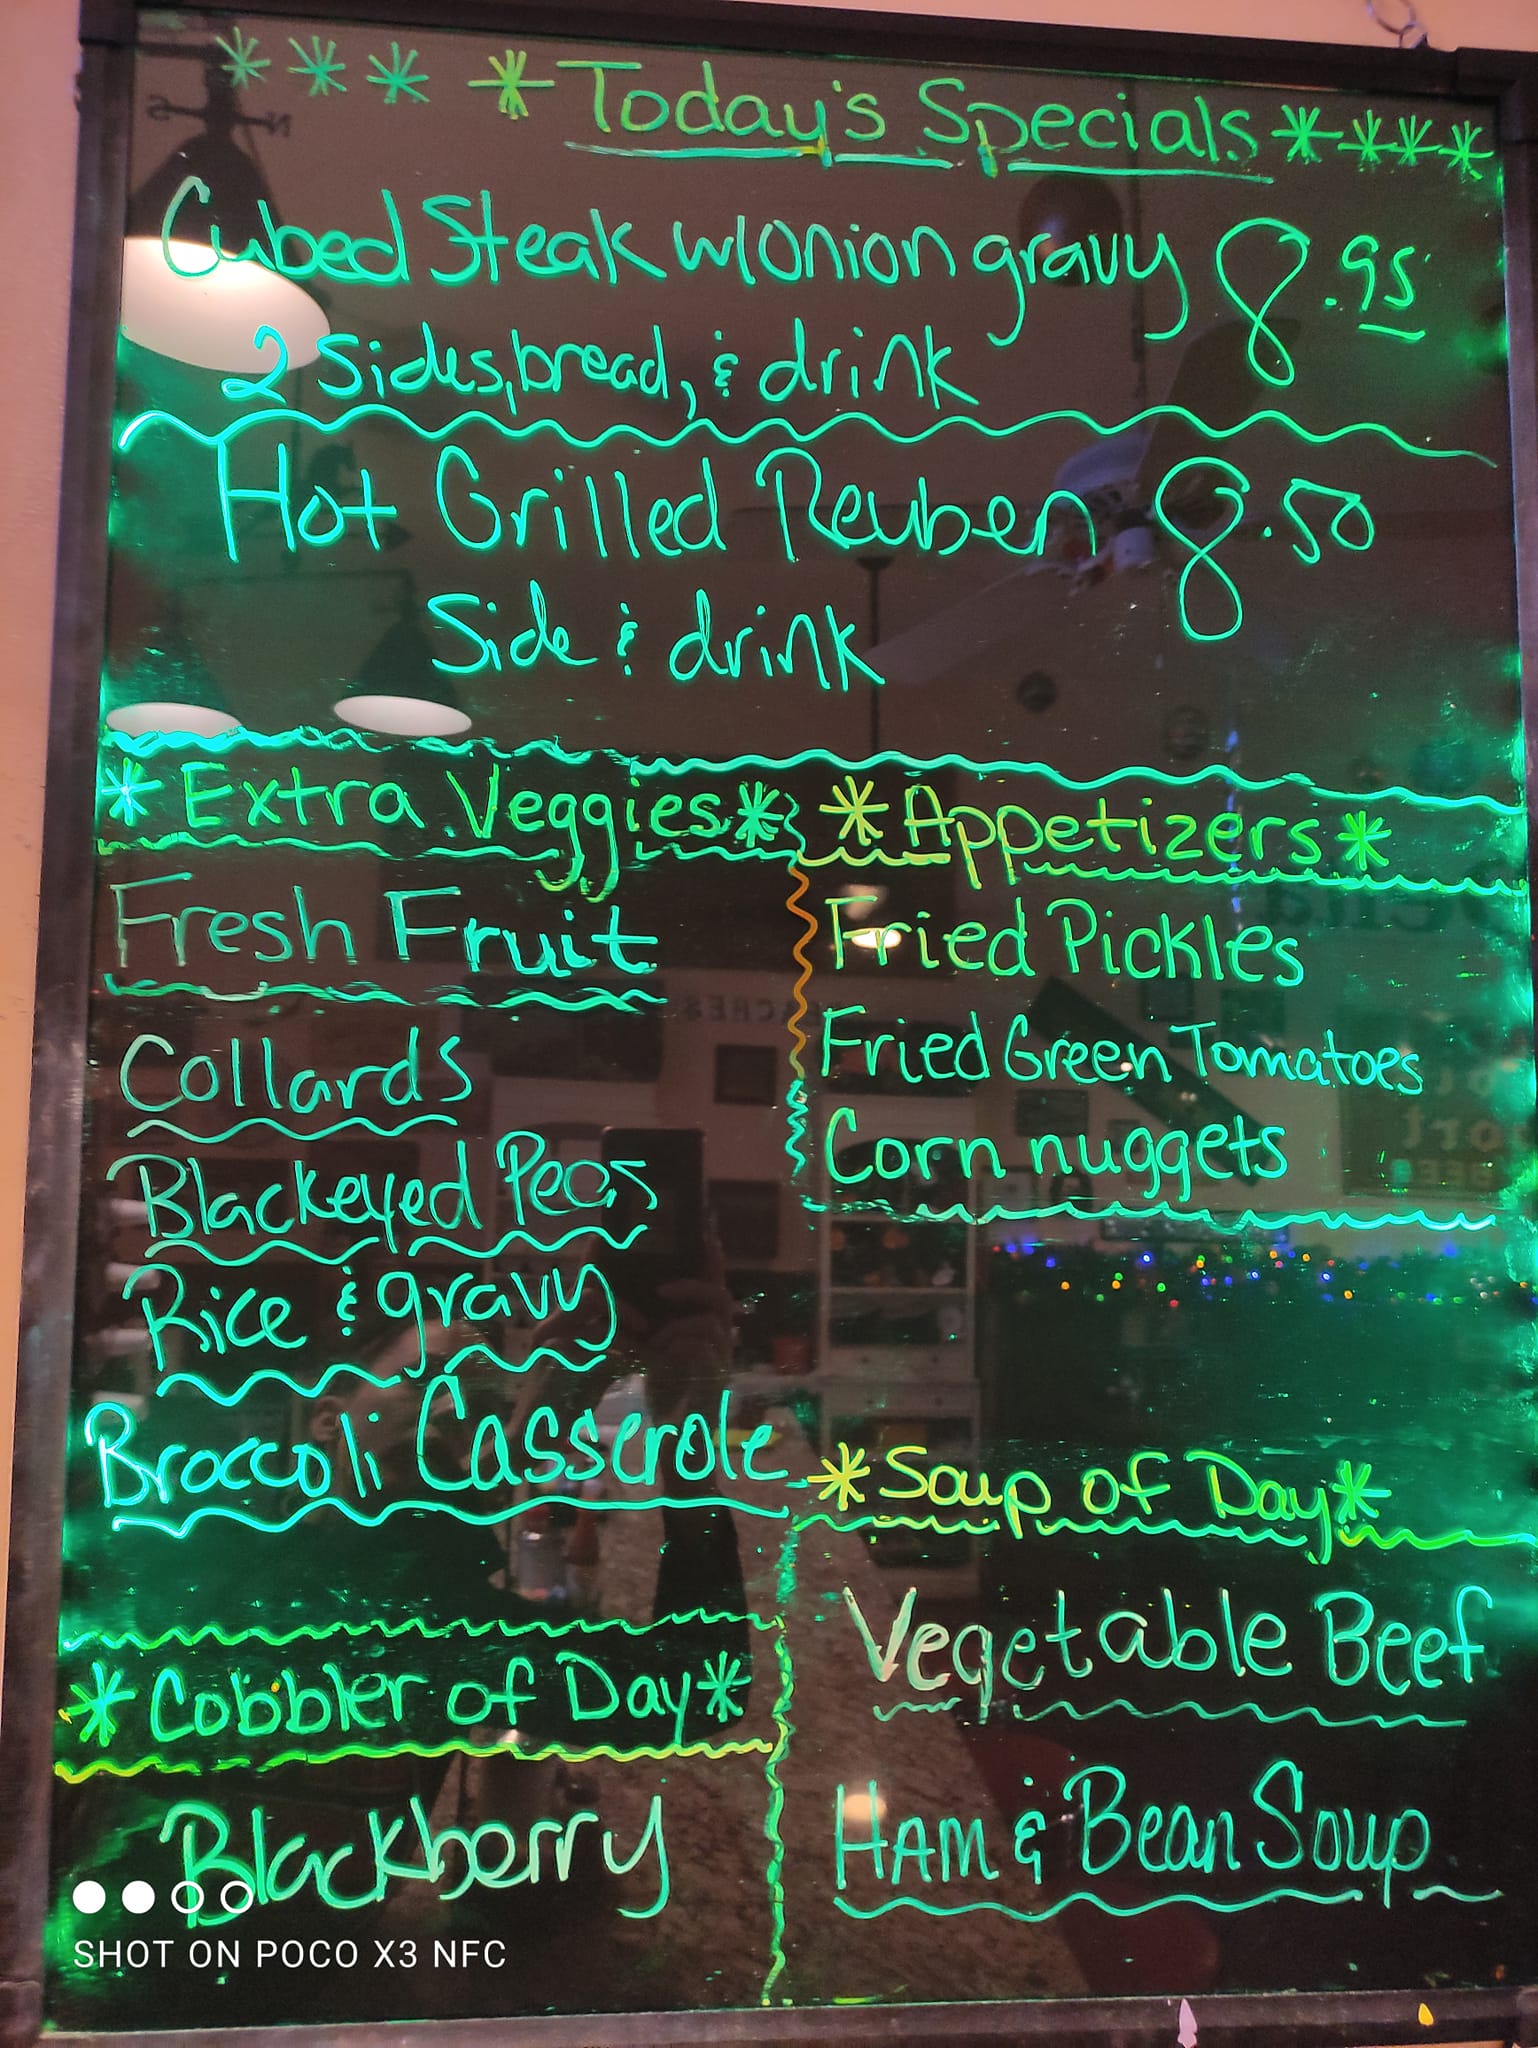 *** *Today's Specials****
Cubed Steak w/Onion gravy 8.95
2 sides, bread, & drink
Hot Grilled Reuben 8.50
Side & drink
*Extra Veggies*
Fresh Fruit
Collards
Blackeyed Peas
Rice & gravy
Broccoli Casserole
*Appetizers*
Fried Pickles
Fried Green Tomatoes
Corn nuggets
*Soup of Day*
Vegetable Beef
Ham & Bean Soup
*Cobbler of Day*
Blackberry
SHOT ON POCO X3 NFC